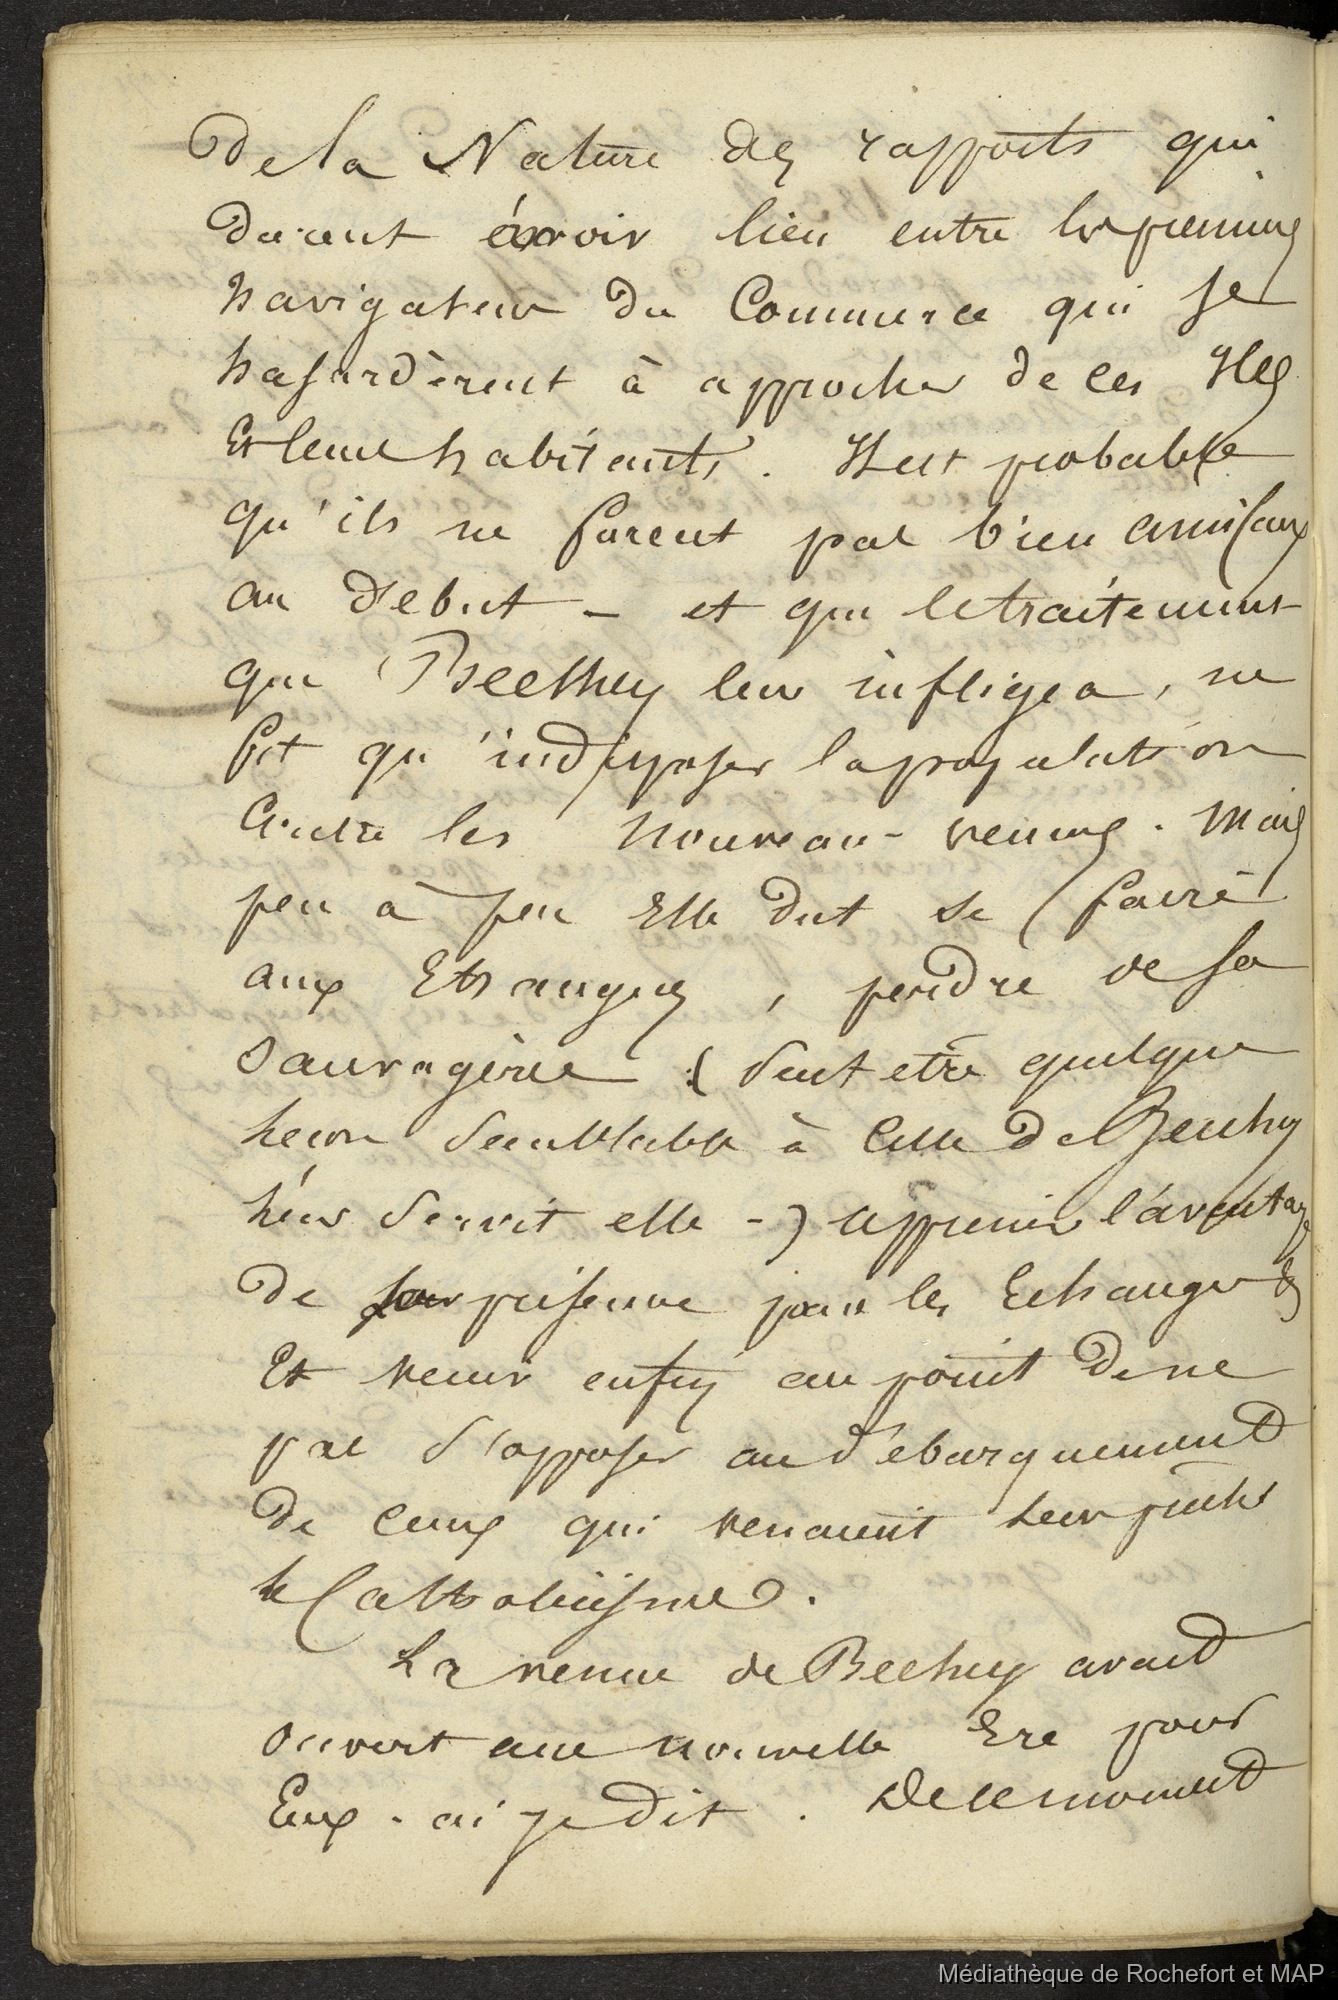 De la Nature des rapports qui
durent avoir lieu entre les premiers
navigateurs du Commerce qui se
hasardèrent à approcher de ces Iles
Et leurs habitants. Il est probable
qu'ils ne furent pas bien amicaux
au début — et que le traitement
que Beethey leur infligea, ne
fit qu'indisposer la population
Contre les nouveau-venus. Mais
peu à peu Elle dut se faire
aux Etrangers, perdre de sa
sauvagerie (Peut etre quelque
leçon semblable à celle de Beechey
servit elle -) apprecier l'avantage
de leur présence pour les Echanges
Et venir enfin au point de ne
pas s'opposer au débarquement
de ceux qui venaient leur prêcher
le Catholicisme.
La venue de Beechey avait
ouvert une nouvelle Ere pour
Eux. ai je dit. De ce moment
Médiathèque de Rochefort et MAP